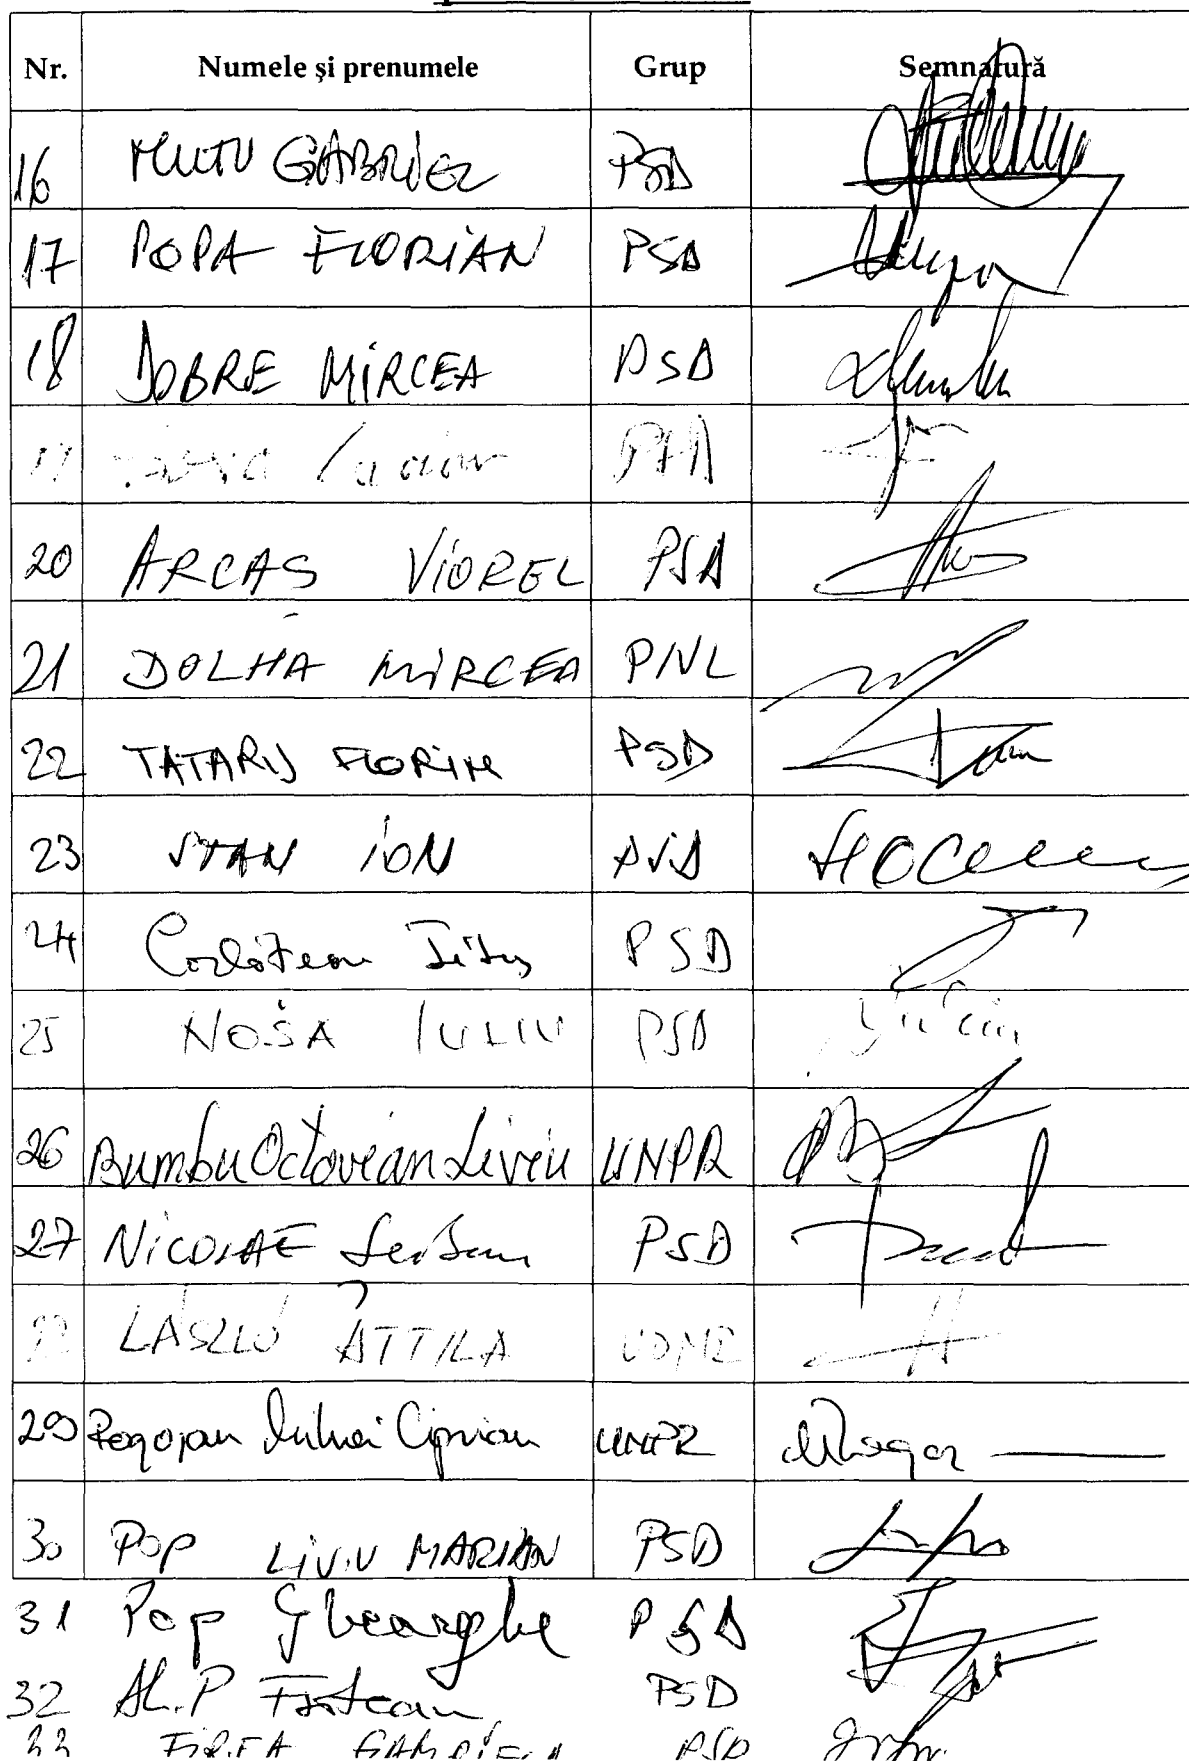 Nr. Numele și prenumele Grup Semnatură
16 MUTU GABRIEL PSD
17 POPA FLORIAN PSD
18 DOBRE MIRCEA PSD
19
20 ARCAȘ VIOREL PSD
21 DOLHA MIRCEA PNL
22 TATARU FLORIN PSD
23 STAN ION PSD
24 Corlățean Titus PSD
25 NOSA IULIU PSD
26 Bumbu Octavian Liviu UNPR
27 NICOLAE Serban PSD
28 LÁSZLÓ ATTILA UDMR
29 Rogojan Mihai Ciprian UNPR
30 Pop LIVIU MARIAN PSD
31 Pop Gheorghe PSD
32 Al. P PSD
33 FIREA GABRIELA PSD